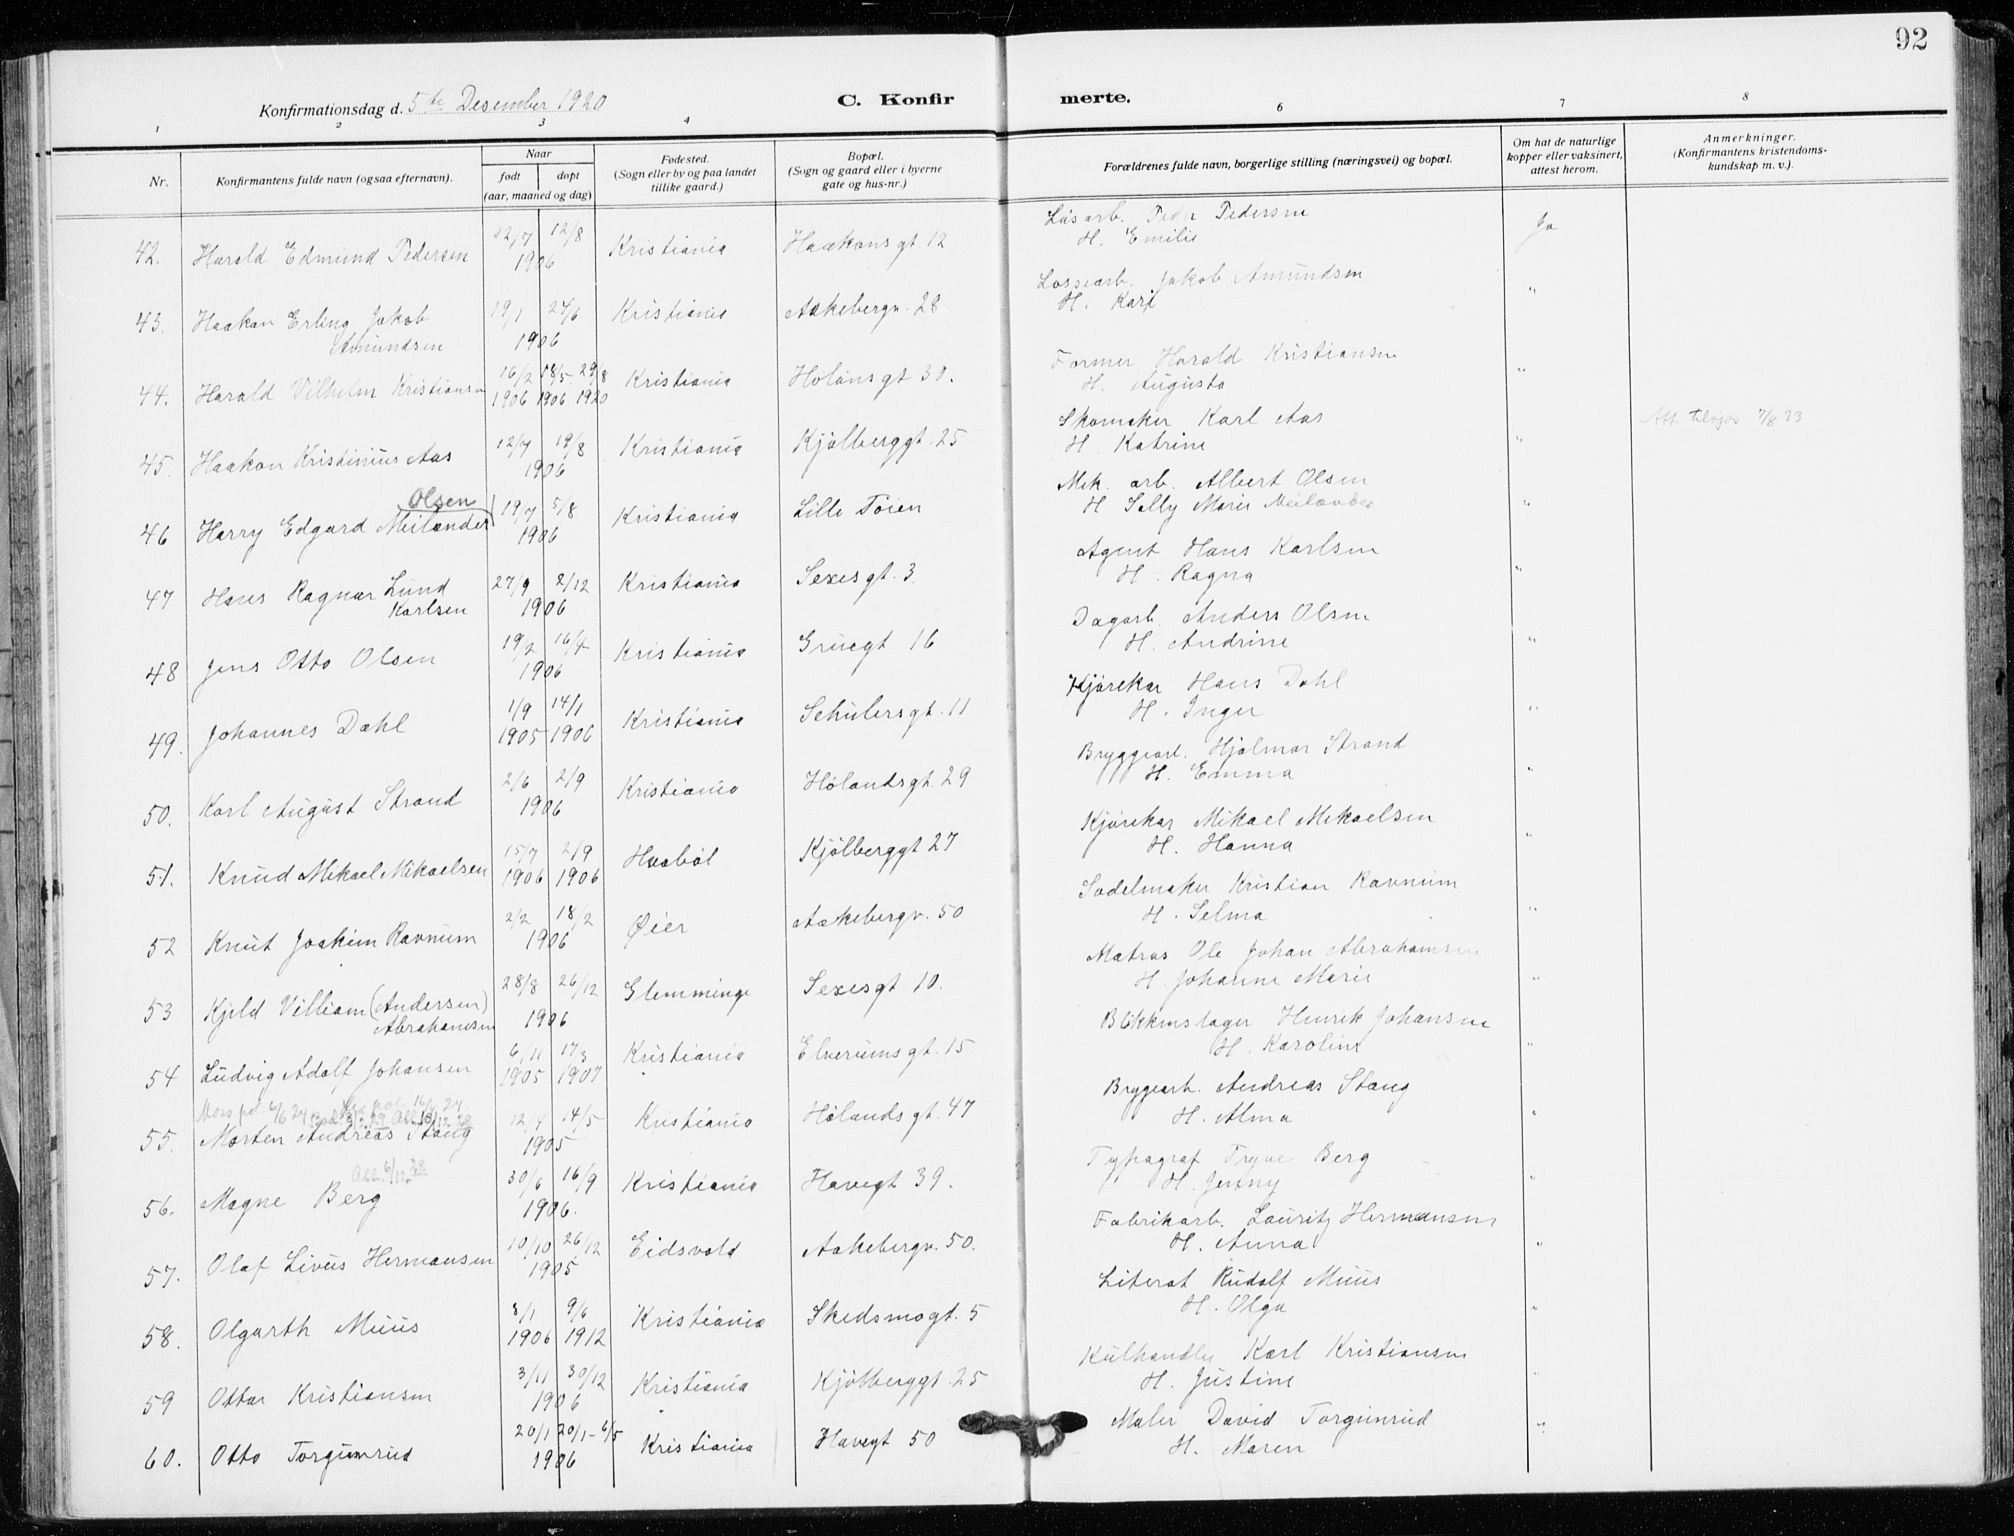 92
Konfirmationsdag d. 5te Desember 1920
C. Konfirmerte.
1 2 3 4 6 7 8
Nr.
Konfirmantens fulde navn (ogsaa efternavn).
Naar
født døpt
(aar, maaned og dag)
Fødested.
(Sogn eller by og paa landet
tillike gaard.)
Bopæl.
(Sogn og gaard eller i byerne
gate og hus-nr.)
Forældrenes fulde navn, borgerlige stilling (næringsvei) og bopæl.
Om hat de naturlige
kopper eller vaksinert,
attest herom.
Anmerkninger.
(Konfirmantens kristendoms-
kundskap m. v.).
42. Harald Edmund Pedersen 12/7 12/8 1906 Kristiania Haakonsgt 12 Løsarb. Peder Pedersen
H. Emilie Ja
43. Haakon Erling Jakob
Amundsen 19/1 24/6 1906 Kristiania Aakebergv. 28 Lossearb. Jakob Amundsen
H. Kari "
44. Harald Vilhelm Kristiansen 16/2 1906 18/5 1906 29/8 1920 Kristiania Hølansgt 30. Former Harald Kristiansen
H. Augusta "
45. Haakon Kristinius Aas 12/7 19/8 1906 Kristiania Kjølberggt. 25 Skomaker Karl Aas
H. Katrine " Att. 7/8 73
46 Harry Edgard Meilænder Olsen 19/7 5/8 1906 Kristiania Lille Tøien Mek. arb. Albert Olsen
H Selly Marie Meilænder "
47 Hans Ragnar Lund
Karlsen 27/9 2/12 1906 Kristiania Sexesgt. 3. Agent Hans Karlsen
H. Ragna "
48 Jens Otto Olsen 19/2 16/4 1906 Kristiania Gruegt 16 Dagarb. Anders Olsen
H. Andrine "
49. Johannes Dahl 1/9 1905 14/1 1906 Kristiania Schulersgt. 11 Kjørekar Hans Dahl
H. Inger "
50. Karl August Strand 2/6 2/9 1906 Kristiania Hølandsgt. 29 Bryggearb. Hjalmar Strand
H. Emma "
51. Knud Mikael Mikaelsen 15/7 1906 2/9 1906 Haabøl Kjølberggt 27 Kjørekar Mikael Mikaelsen
H. Hanna "
52 Knut Joakim Ravnum 2/2 18/2 1906 Øier Aakebergv. 50 Sadelmaker Kristian Ravnum
H. Selma "
53 Kjeld Villiam (Andersen)
Abrahamsen 28/8 26/12 1906 Glemminge Sexesgt 10. Matros Ole Johan Abrahamsen
H. Johanne Marie "
54 Ludvig Adolf Johansen 6/11 1905 17/3 1907 Kristiania Elverumsgt. 15 Blikkenslager Henrik Johansen
H. Karoline "
55. Morten Andreas Stang 12/4 14/5 1905 Kristiania Hølandsgt. 47 Bryggearb. Andreas Stang
H. Alma "
56. Magne Berg Att. 6/12. 38 30/6 16/9 1906. Kristiania Havegt 39. Typograf Tryve Berg
H. Jenny "
57. Olaf Livius Hermansen 10/10 26/12 1905 Eidsvold Aakebergv. 50. Fabrikarb. Lauritz Hermansen
H. Anna "
58. Olgarth Muus 8/1 1906 9/6 1912 Kristiania Skedsmogt. 5 Literat Rudolf Muus
H. Olga "
59 Ottar Kristiansen 3/11 30/12 1906 Kristiania Kjølberggt. 25 Kulhandler Karl Kristiansen
H. Justine "
60. Otto Torgunrud 20/1 20/1 - 6/5 1906 Kristiania Havegt 50 Maler David Torgunrud
H. Maren "